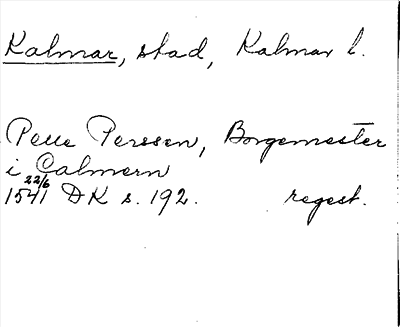 Kalmar, stad, Kalmar l.
Pelle Perssen, Borgemester
i Calmern
22/6
1541 DK s. 192. regest.